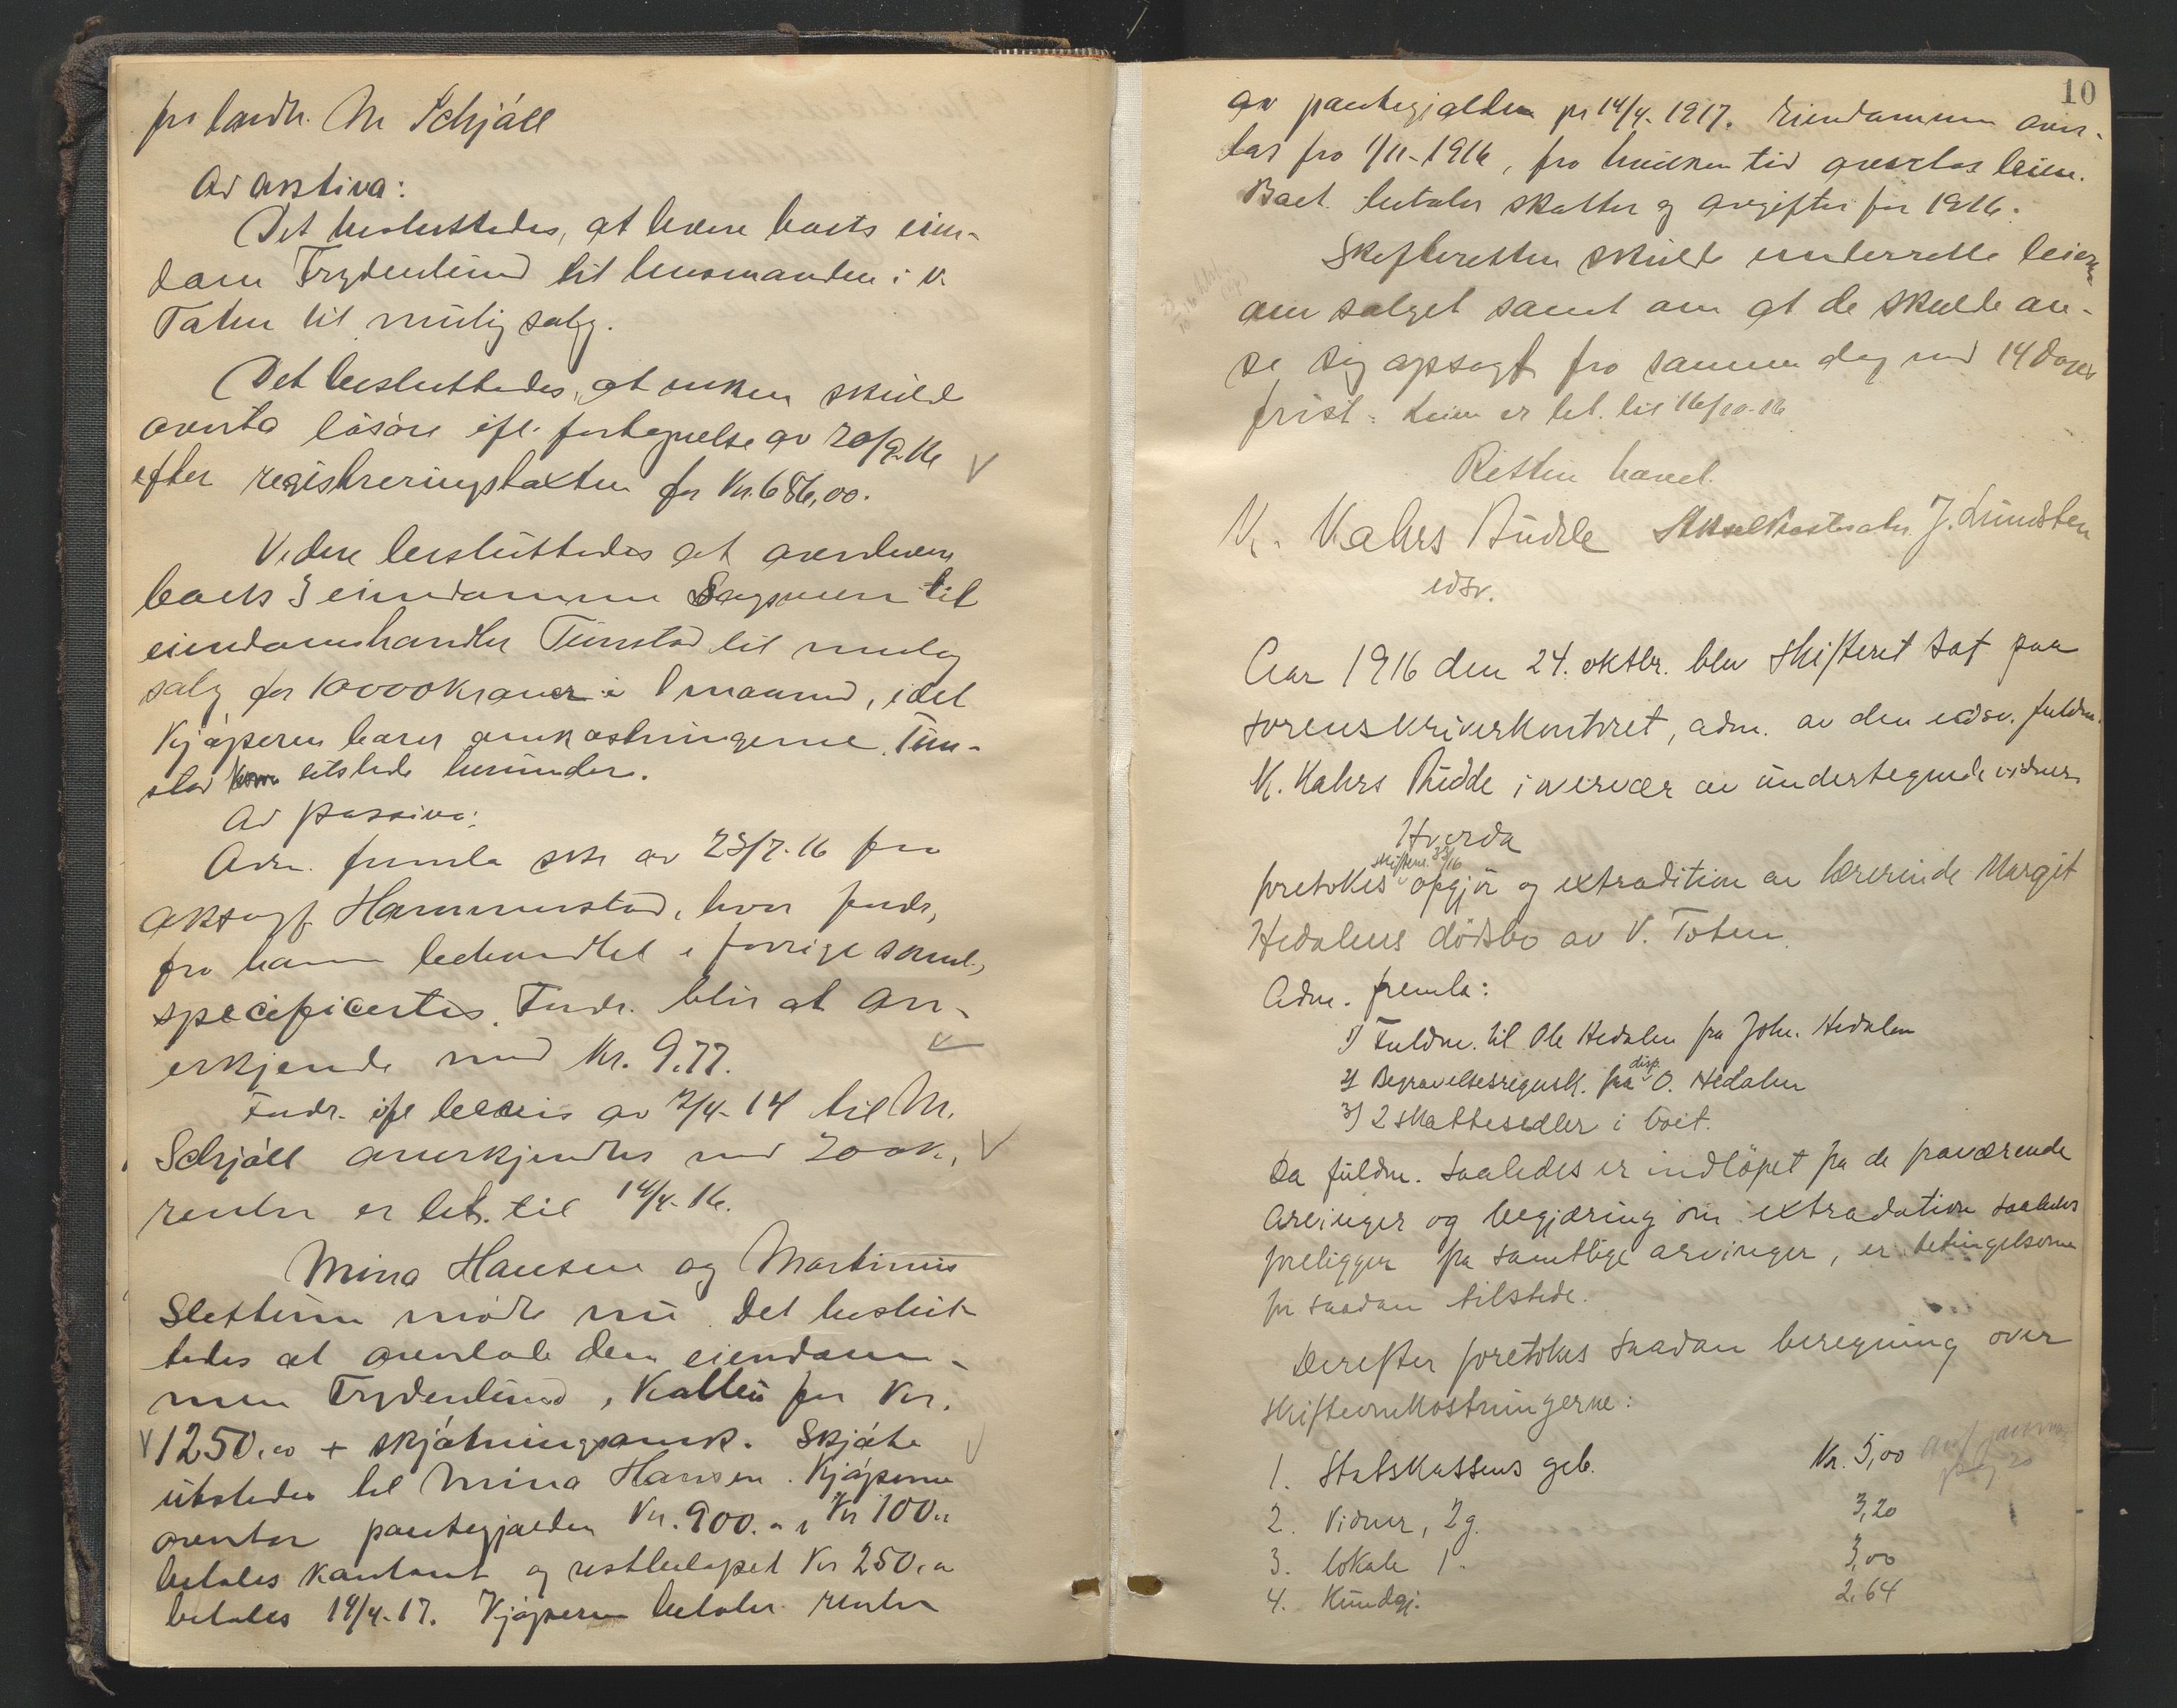 fra landh. M Schjåll
Ad aktiva:
Det besluttedes, at levere boets eien-
dom Frydenlund til lensmanden i V.
Toten til mulig salg.
Det besluttedes, at enken skulde
overta løsøre ifl. fortegnelse av 20/9-16
efter registreringstaxten for Kr. 686,00.
Videre besluttedes at overlevere
boets eiendomme til
eiendomshandler Tunstad til mulig
salg for 10000 kroner i 1 maaned, idet
kjøperen bærer omkostningerne. Tun-
stad tilstede herunder.
Ad passiva:
Adm. fremla skr av 23/7-16 fra
aksagf. Hammerstad, hvor fordr.
fra ham behandlet i forrige saml.
specificertes. Fordr. blir at an-
erkjende med Kr. 9.77.
Fordr. ifl bevis av 7/4-14 til M.
Schjåll anerkjendtes med 200 kr.,
renter er bet. til 14/4-16.
Mina Hansen og Martinius
Slettum møtte nu. Det beslut-
tedes at overlate dem eiendom-
men Frydenlund, Kolbu for Kr.
1250,00 + skjøtningsomk. Skjøte
utstedes til Mina Hansen. Kjøperne
overtar pantegjælden Kr. 900.-, Kr 100.-
betales kontant og restbeløpet Kr 250,00
betales 14/4-17. Kjøperne betaler renter
10
av pantegjælden pr 14/4-1917. Eiendommen over-
tas fra 1/11-1916, fra hvilken tid overtas leien.
Boet betaler skatter og avgifter for 1916.
Skifteretten skulde underrette leierne
om salget samt om at de skulde an-
se sig opsagt fra samme dag med 14 dages
frist. Leien er bet. til 16/10-16
Retten hævet.
K. Kahrs Budde J. Lundsten
edsv.
Aar 1916 den 24. oktbr. blev skifteret sat paa
sorenskriverkontoret, adm. av den edsv. fuldm.
K. Kahrs Budde i overvær av undertegnede vidner
Hvorda
skiftenr. 33/16
foretokes opgjør og extradition av lærerinde Margit
Hedalens dødsbo av V. Toten.
Adm. fremla:
1) Fuldm. til Ole Hedalen fra Joh. Hedalen
disp.
2) Begravelsesregnsk. fra O. Hedalen
3) 2 skattesedler i boet.
Da fuldm. saaledes er indløpet fra de fraværende
arvinger og begjæring om extradation saaledes
foreligger fra samtlige arvinger, er betingelserne
for saadan tilstede.
Derefter foretokes saadan beregning over
skifteomkostningerne:
1. Statskassens geb. Kr. 5,00
2. Vidner, 2 g. 3,20
3. lokale 1. 3,00
4. Kundgj. 2,64